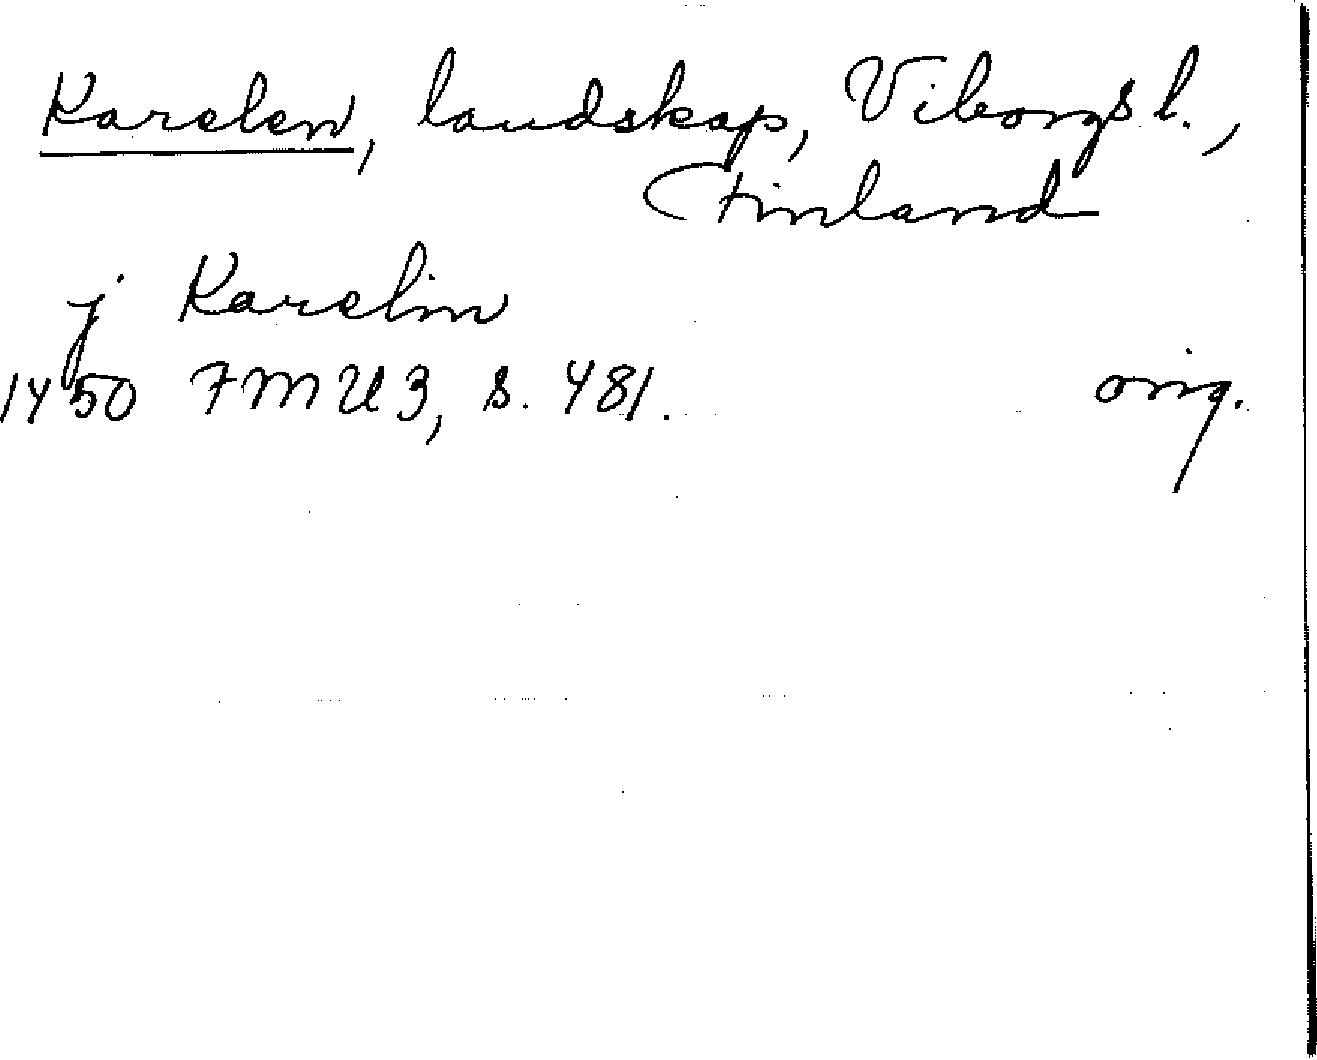 Karelen, landskap, Viborgs l.,
Finland
j Karelin
1450 FMU 3, s. 481.
orig.